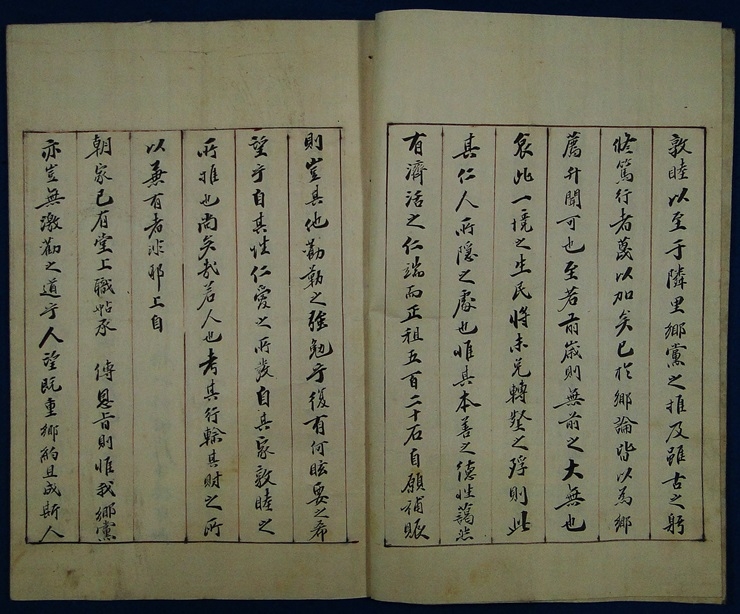 敦睦以至于隣里鄕黨之推及雖古之躬
修篤行者蔑以加矣已於鄕論皆以爲鄕
薦升聞可也至若前歲則無前之大無也
哀此一境之生民將未免轉壑之殍則此
眞仁人所隱之處也惟其本善之德性藹然
有濟活之仁端而正租五百二十石自願補賑
則豈其他勸勒之強勉乎復有何眩要之希
望乎自其性仁愛之所發自其家敦睦之
所推也尙矣哉若人也考其行輸其財之所
以兼有者非耶上自
朝家已有堂上職帖承 傳恩旨則惟我鄕黨
亦豈無激勸之道乎人望旣重鄕約且成斯人